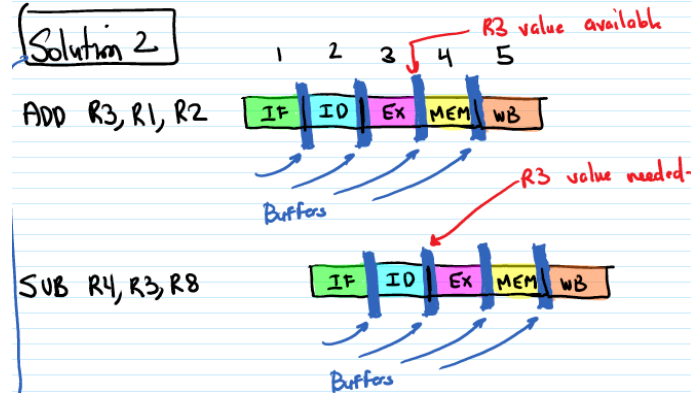 Solution 2
R3 value available
1 2 3 4 5
ADD R3, R1, R2
IF ID EX MEM WB
Buffers
R3 value needed-
SUB R4, R3, R8
IF ID EX MEM WB
Buffers